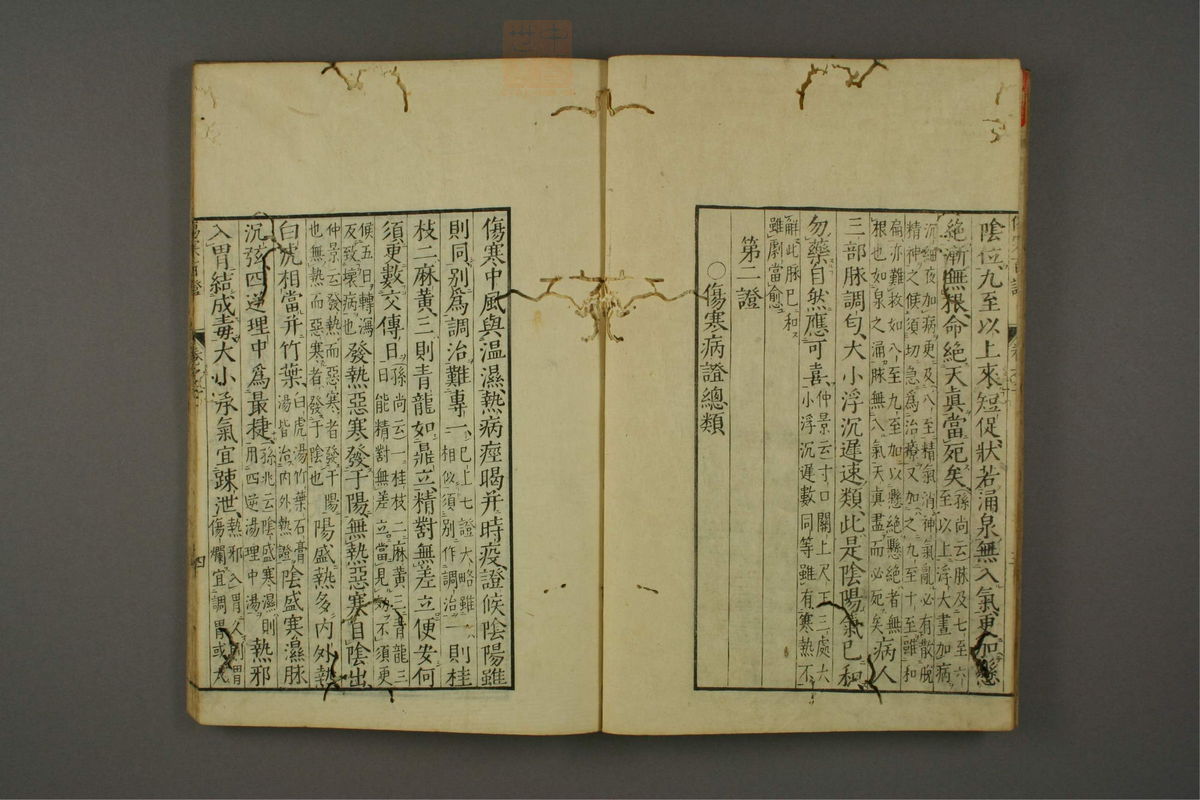 陰位九至以上來短促狀若涌泉無入氣更加懸
絶漸無根命絶天眞當死矣孫尚云脉及七至六
至以上浮大晝加病
沉細夜加病更及八至精氣消神氣亂必有散脫
精神之候須切急爲治療又加之九至十至雖和
扁亦難救如八至九至加以懸絶懸絶者無
根也如泉之涌脉無入氣天眞盡而必死矣病人
三部脉調匀大小浮沉遲速類此是陰陽氣已和
勿藥自然應可喜仲景云寸口關上尺下三處大
小浮沉遲數同等雖有寒熱不
解此脉已和
雖劇當愈
第二證
○傷寒病證總類
傷寒中風與温濕熱病痓暍并時疫證候陰陽雖
則同别爲調治難專一已上七證大略雖
相似須别作調治一則桂
枝二麻黄三則青龍如鼎立精對無差立便安何
須更數交傳日孫尚云一桂枝二麻黄三青龍三
日能精對無差立當見効不須更
候五日轉瀉
及致壞病也發熱惡寒發于陽無熱惡寒自陰出
仲景云發熱而惡寒者發于陽
也無熱而惡寒者發于陰也陽盛熱多内外熱
白虎相當并竹葉白虎湯竹葉石膏
湯皆治内外熱證陰盛寒濕脉
沉弦四逆理中爲最捷孫兆云陰盛寒濕則
用四逆湯理中湯熱邪
入胃結成毒大小承氣宜踈泄熱邪入胃久則胃
傷爛宜調胃或大
四